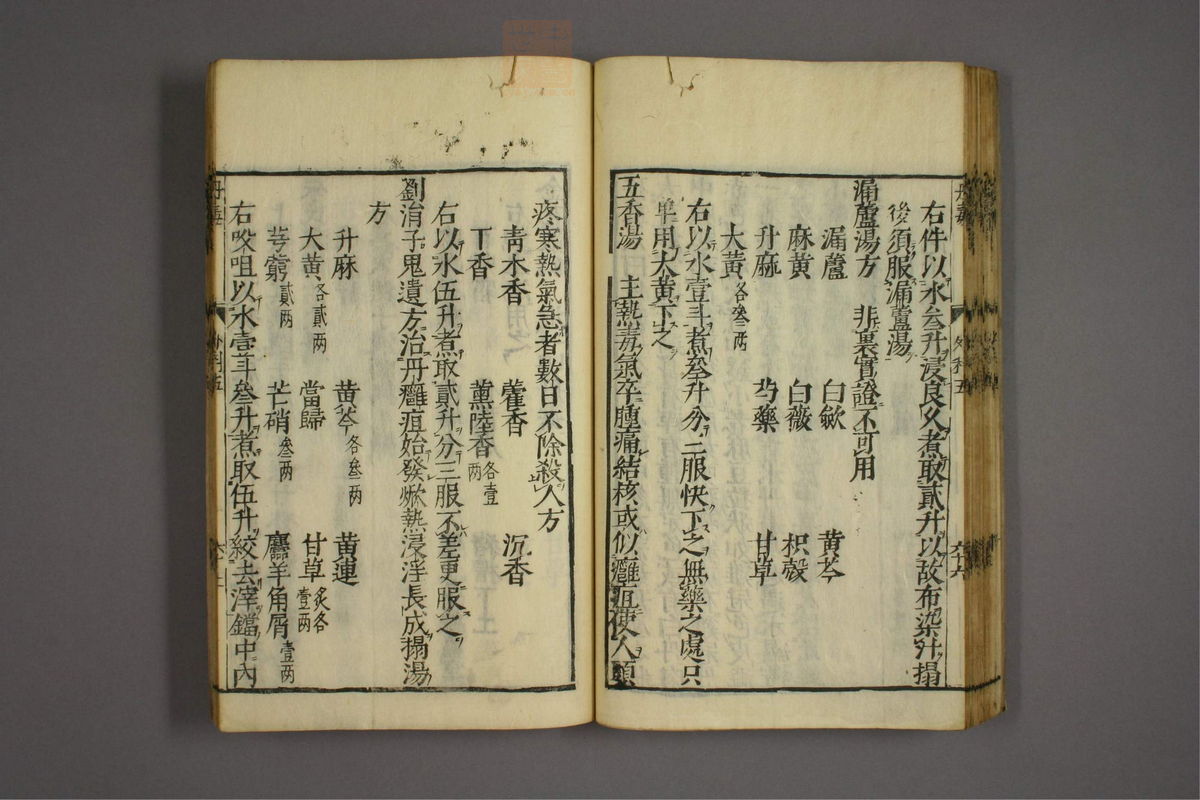 右件以水叁升浸良久煮取貳升以故布染汁搨
後須服漏蘆湯
漏蘆湯方　非裏實證不可用
漏蘆　白歛　黄芩
麻黄　白薇　枳殼
升麻　芍藥　甘草
大黄各叁两
右以水壹斗煮叁升分三服快下之無藥之處只
單用大黄下之
五香湯　主熱毒氣卒腫痛結核或似癰疽使人頭
疼寒熱氣急者數日不除殺人方
青木香　藿香　沉香
丁香　薰陸香各壹两
右以水伍升煮取貳升分三服不差更服之
劉涓子鬼遺方治丹癰疽始發焮熱浸淫長成搨湯
方
升麻　黄芩各叁两　黄連
大黄各貳两　當歸　甘草炙各壹两
芎藭貳两　芒硝叁两　羚羊角屑壹两
右㕮咀以水壹斗叁升煮取伍升絞去滓鐺中内